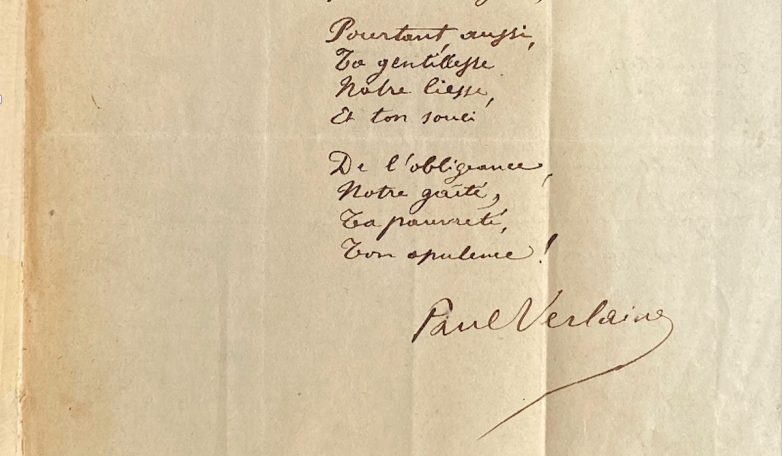 Pourtant, aussi,
Ta gentillesse
Notre liesse,
Et ton souci
De l'obligeance,
Notre gaîté,
Ta pauvreté,
Ton opulence !
Paul Verlaine